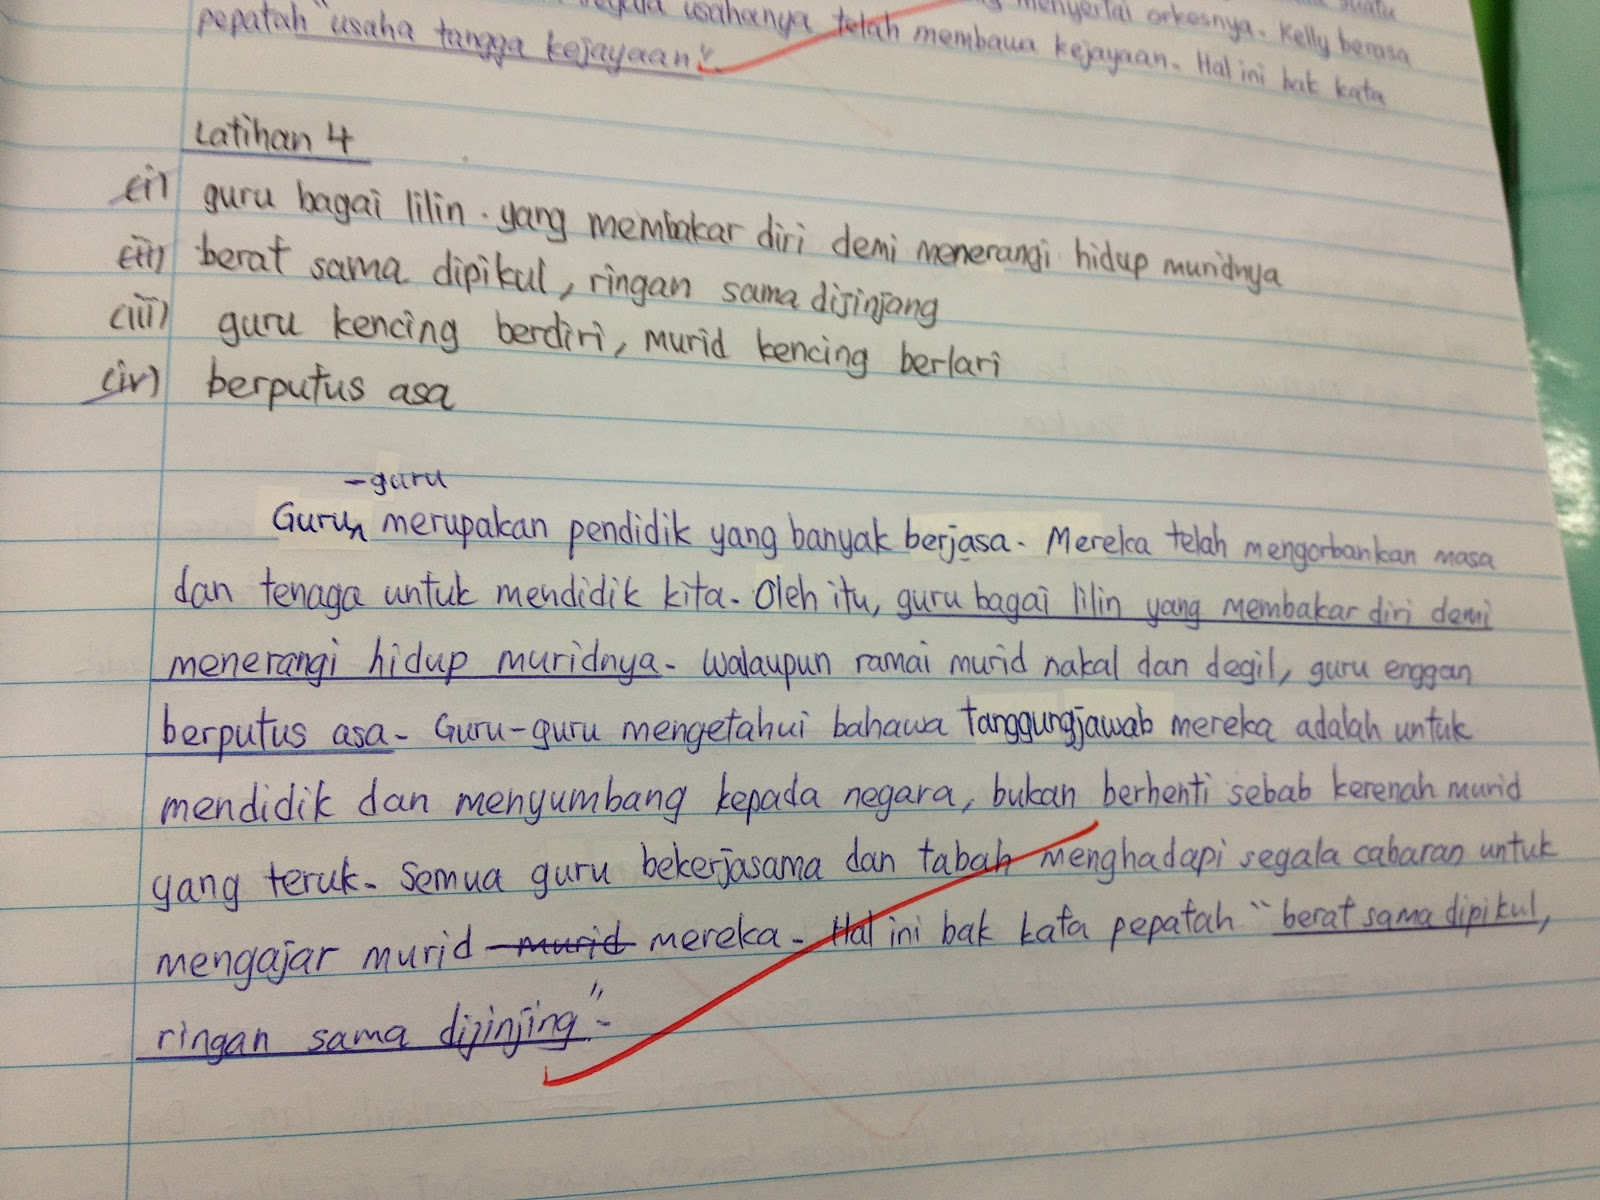 segala usahanya telah membawa kejayaan. Hal ini bak kata
menyertai orkesnya. Kelly berasa
suatu
pepatah "usaha tangga kejayaan".
Latihan 4
(i) guru bagai lilin yang membakar diri demi menerangi hidup muridnya
(ii) berat sama dipikul, ringan sama dijinjang
(iii) guru kencing berdiri, murid kencing berlari
(iv) berputus asa
-guru
Guru merupakan pendidik yang banyak berjasa. Mereka telah mengorbankan masa
dan tenaga untuk mendidik kita. Oleh itu, guru bagai lilin yang membakar diri demi
menerangi hidup muridnya. Walaupun ramai murid nakal dan degil, guru enggan
berputus asa. Guru-guru mengetahui bahawa tanggungjawab mereka adalah untuk
mendidik dan menyumbang kepada negara, bukan berhenti sebab kerenah murid
yang teruk. Semua guru bekerjasama dan tabah menghadapi segala cabaran untuk
mengajar murid murid mereka. Hal ini bak kata pepatah "berat sama dipikul,
ringan sama dijinjing".